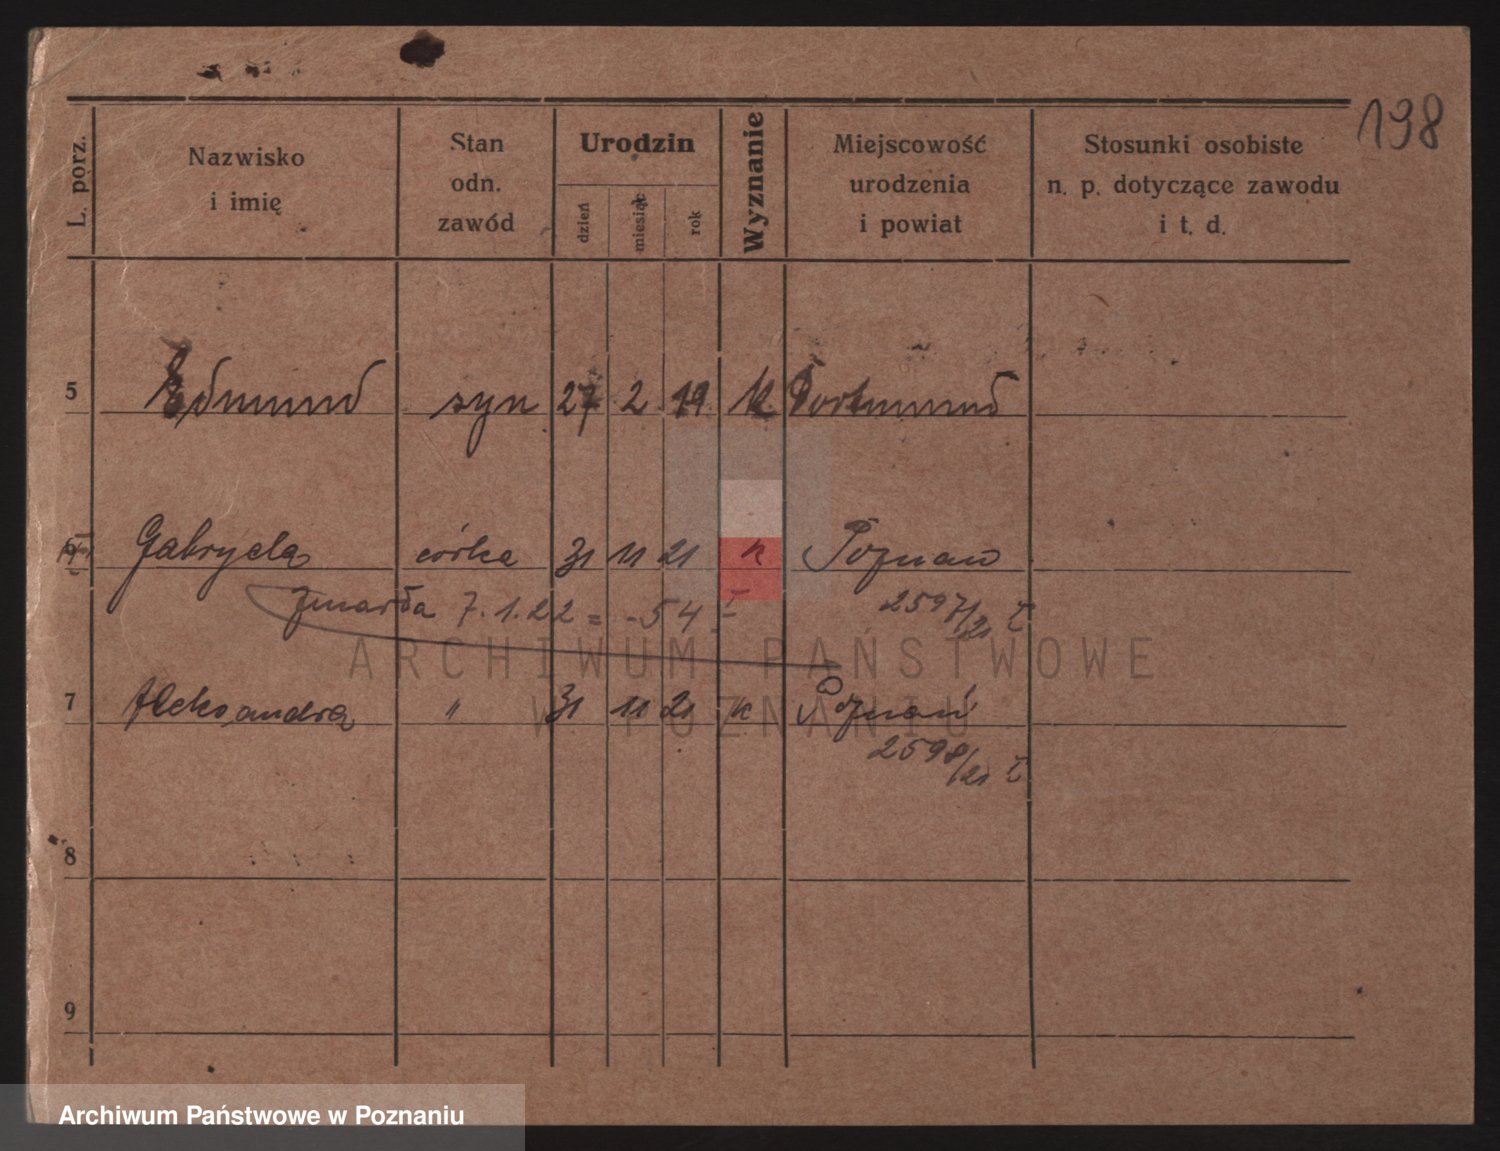 198
L. porz.
Nazwisko
i imię
Stan
odn.
zawód
Urodzin
dzień
miesiąc
rok
Wyznanie
Miejscowość
urodzenia
i powiat
Stosunki osobiste
n. p. dotyczące zawodu
i t. d.
5 Edmund syn 27 2 19 k Dortmund
6 Gabryela córka 31 11 21 k Poznań
Zmarła 7.1.22 = -54 I
2597/21 I
7 Aleksandra " 31 11 21 k Poznań
2598/21 I
8
9
ARCHIWUM PAŃSTWOWE
W POZNANIU
Archiwum Państwowe w Poznaniu